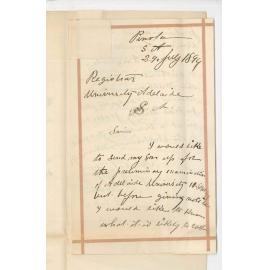 Penola
S A
29 July 1899
Registrar
University Adelaide
S A.
I would like
to send my son up for
the preliminary examination
of Adelaide University
but before giving
I would like to know
what it is likely to